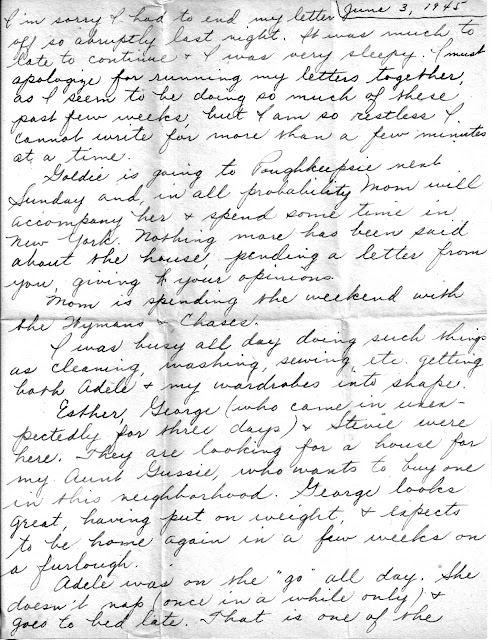 June 3, 1945
I'm sorry I had to end my letter
off so abruptly last night. It was much to
late to continue & I was very sleepy. I must
apologize for running my letters together,
as I seem to be doing so much of these
past few weeks, but I am so restless I
cannot write for more than a few minutes
at a time.
Goldie is going to Poughkeepsie next
Sunday and in all probability Mom will
accompany her & spend some time in
New York. Nothing more has been said
about the house, pending a letter from
you, giving your opinions.
Mom is spending the weekend with
the Wymans - Chases.
I was busy all day doing such things
as cleaning, washing, sewing, etc. getting
both Adele & my wardrobes into shape.
Esther, George (who came in unex-
pectedly for three days) & Stevie were
here. They are looking for a house for
my Aunt Gussie, who wants to buy one
in this neighborhood. George looks
great, having put on weight, & expects
to be home again in a few weeks on
a furlough.
Adele was on the "go" all day. She
doesn't nap (once in a while only) &
goes to bed late. That is one of the